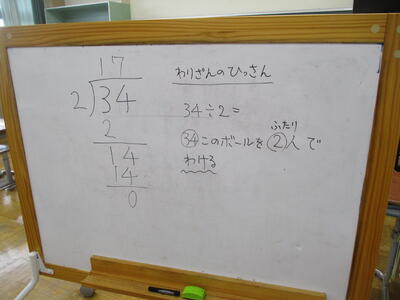 17
2)34
2
14
14
0
わりざんのひっさん
34÷2=
㉞このボールを②人で
ふたり
わける